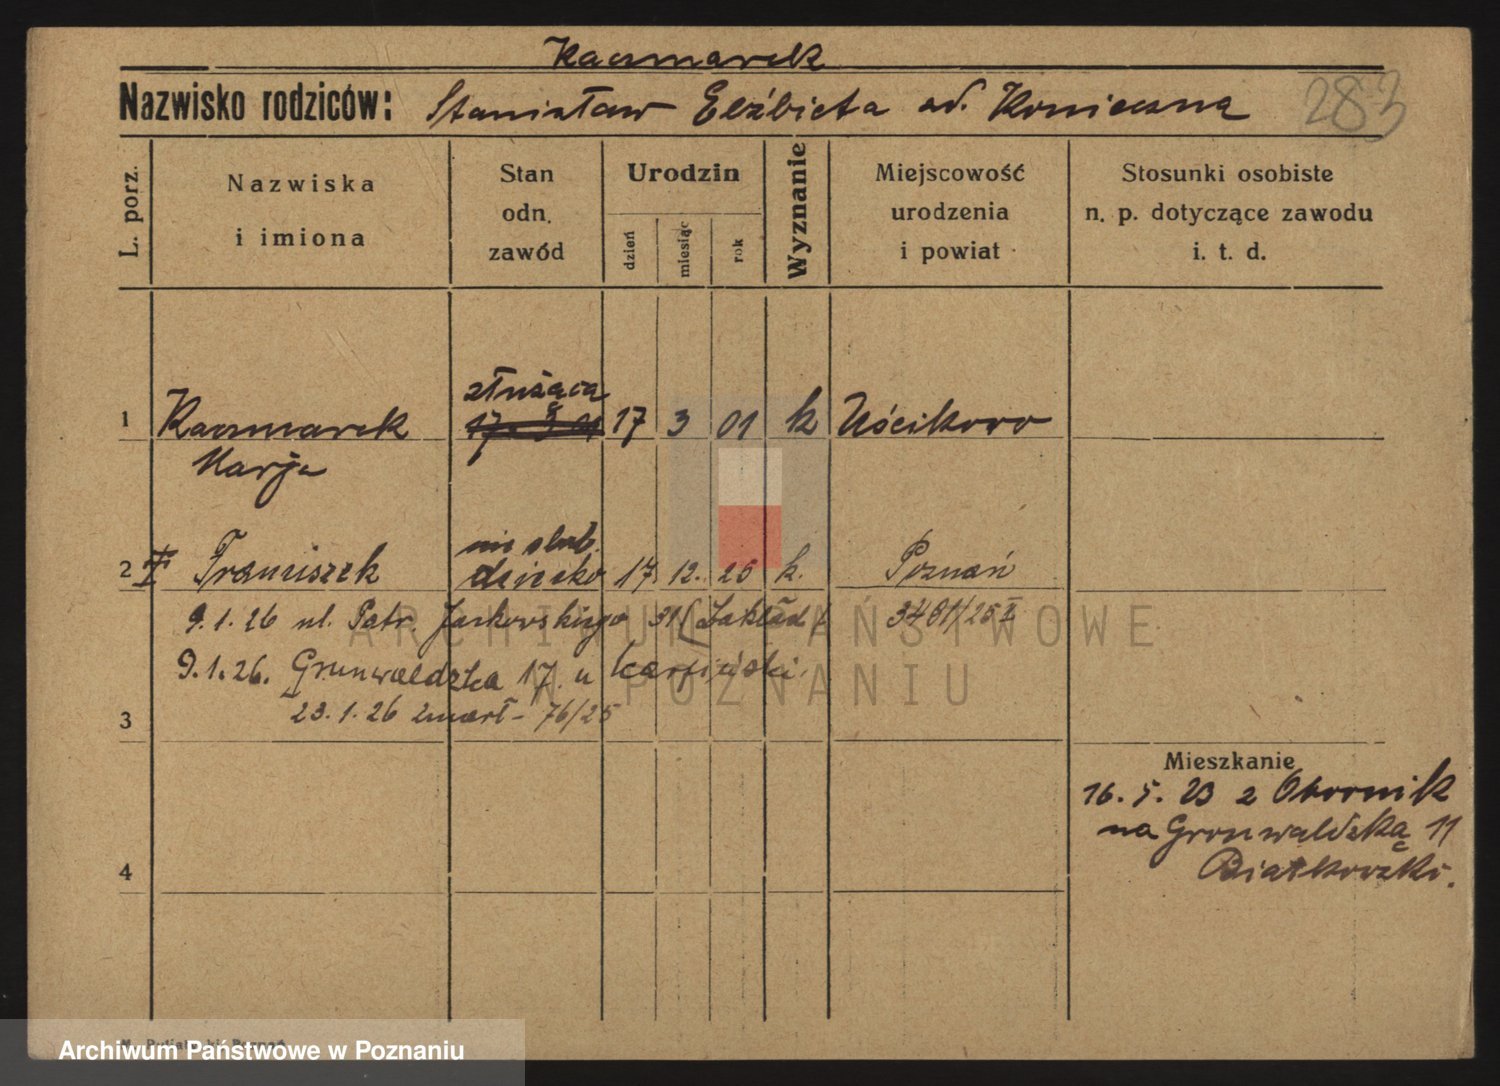 Kaczmarek
Nazwisko rodziców: Stanisław Elżbieta zd. Konieczna 283
L. porz.
Nazwiska i imiona
Stan odn. zawód
Urodzin
dzień miesiąc rok
Wyznanie
Miejscowość urodzenia i powiat
Stosunki osobiste n. p. dotyczące zawodu i. t. d.
służąca
1 Kaczmarek 17 3 01 17 3 01 k Uścikowo
Marja
nieślub.
2 Franciszek dziecko 17 12. 25 k. Poznań
9.1.26 ul. Patr. Jackowskiego 31 (Zakład) 3401/25 I
9.1.26. Grunwaldzka 17 u
23.1.26 zmarł - 76/25
3
Mieszkanie
16. 5. 23 z Obornik
na Grunwaldzką 11
4
ARCHIWUM PAŃSTWOWE
W POZNANIU
Archiwum Państwowe w Poznaniu